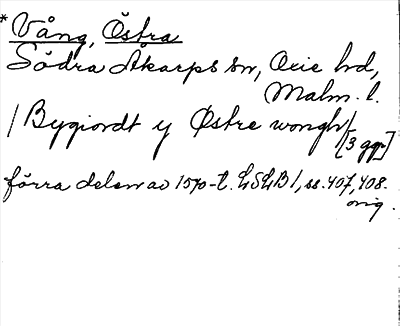 * Vång, Östra
Södra Åkarps sn, Oxie hd,
Malm. l.
/ Bygiordt y Østre wongh /
[3 ggr]
förra delen av 1570-t. LSLB 1, ss. 407, 408.
orig.